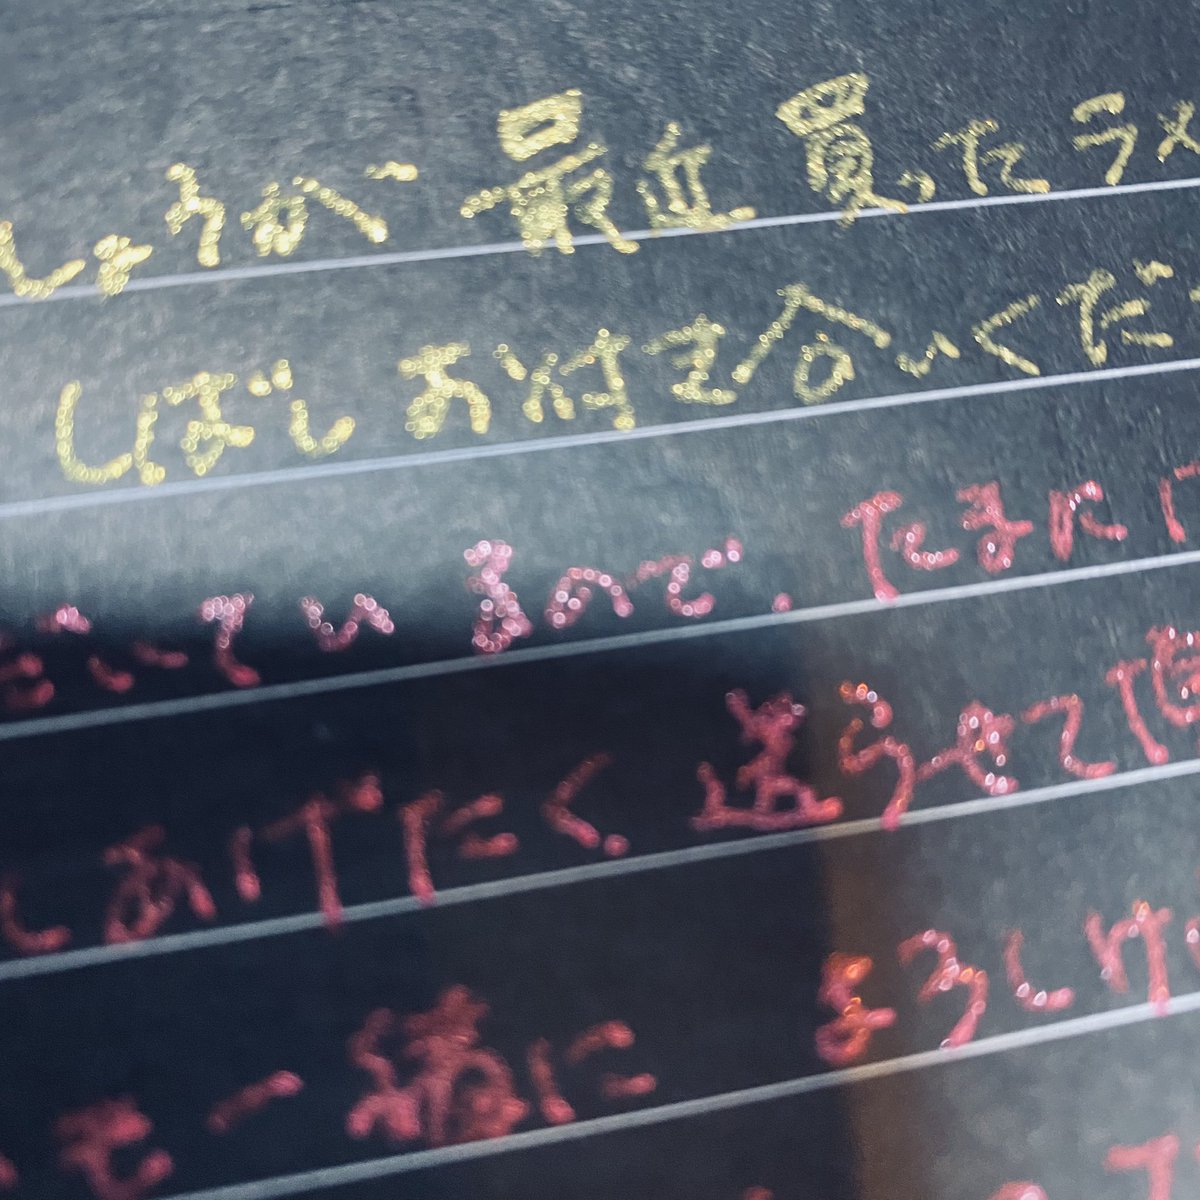 しょうが 最近 買ったラメ
しばし お付き合いくだ
ているので、たまには
しあげたく 送らせて頂
も一緒に よろしけ